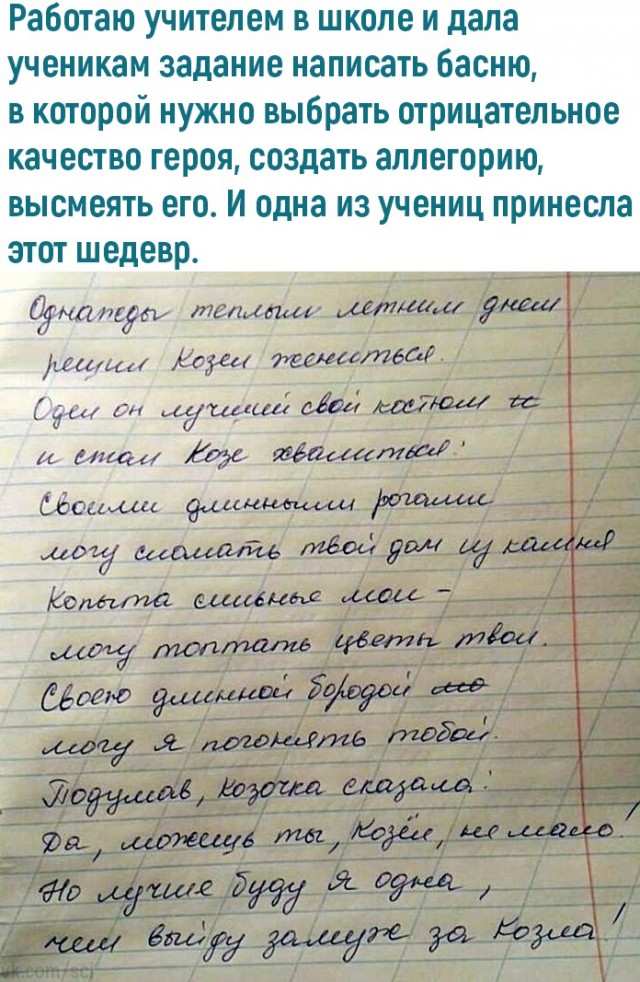 Работаю учителем в школе и дала
ученикам задание написать басню,
в которой нужно выбрать отрицательное
качество героя, создать аллегорию,
высмеять его. И одна из учениц принесла
этот шедевр.
Однажды теплым летним днем
решил Козел жениться.
Одел он лучший свой костюм
и стал Козе хвалиться:
Своими длинными рогами
могу сломать твой дом из камня
Копыта сильные мои –
могу топтать цветы твои.
Своею длинной бородой
могу я погонять тобой.
Подумав, Козочка сказала:
Да, можешь ты, Козёл, не мало!
Но лучше буду я одна,
чем выйду замуж за Козла!
vk.com/sci